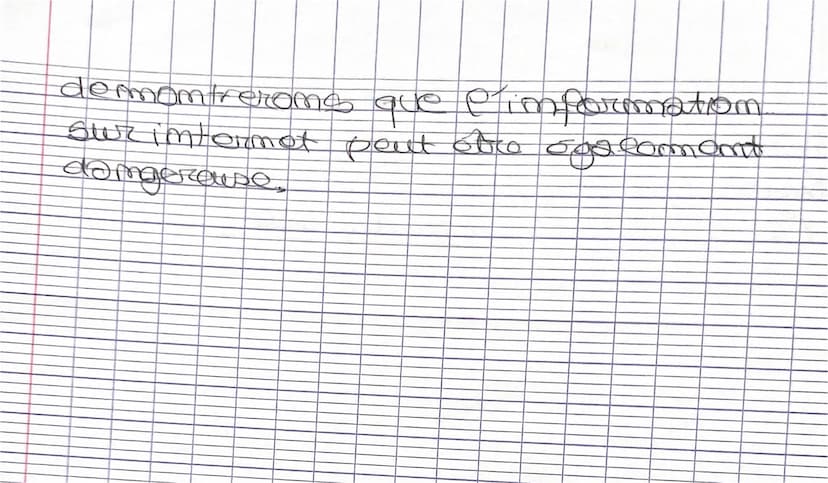 demontrerons que l'information
sur internet peut être également
dangereuse.